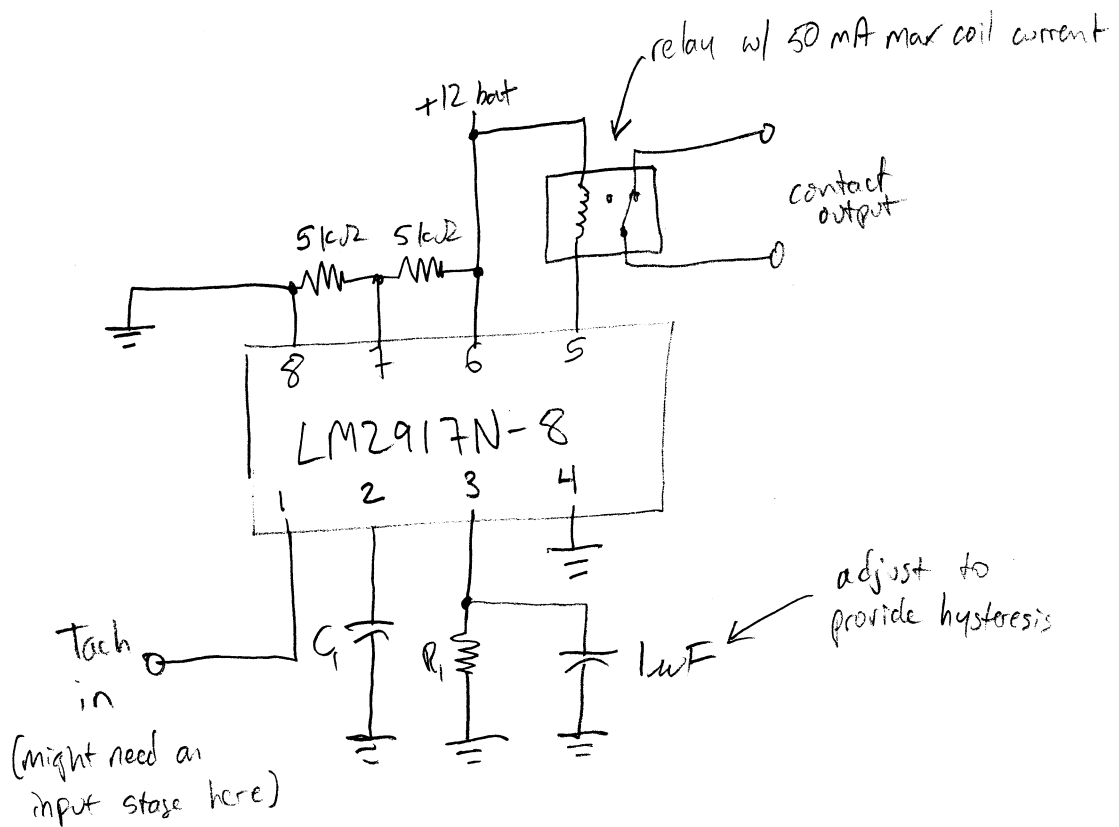 relay w/ 50 mA max coil current
+12 bat
contact
output
5kΩ 5kΩ
8 7 6 5
LM2917N-8
1 2 3 4
adjust to
provide hysteresis
Tach
in
C1
R1
1uF
(might need an
input stage here)